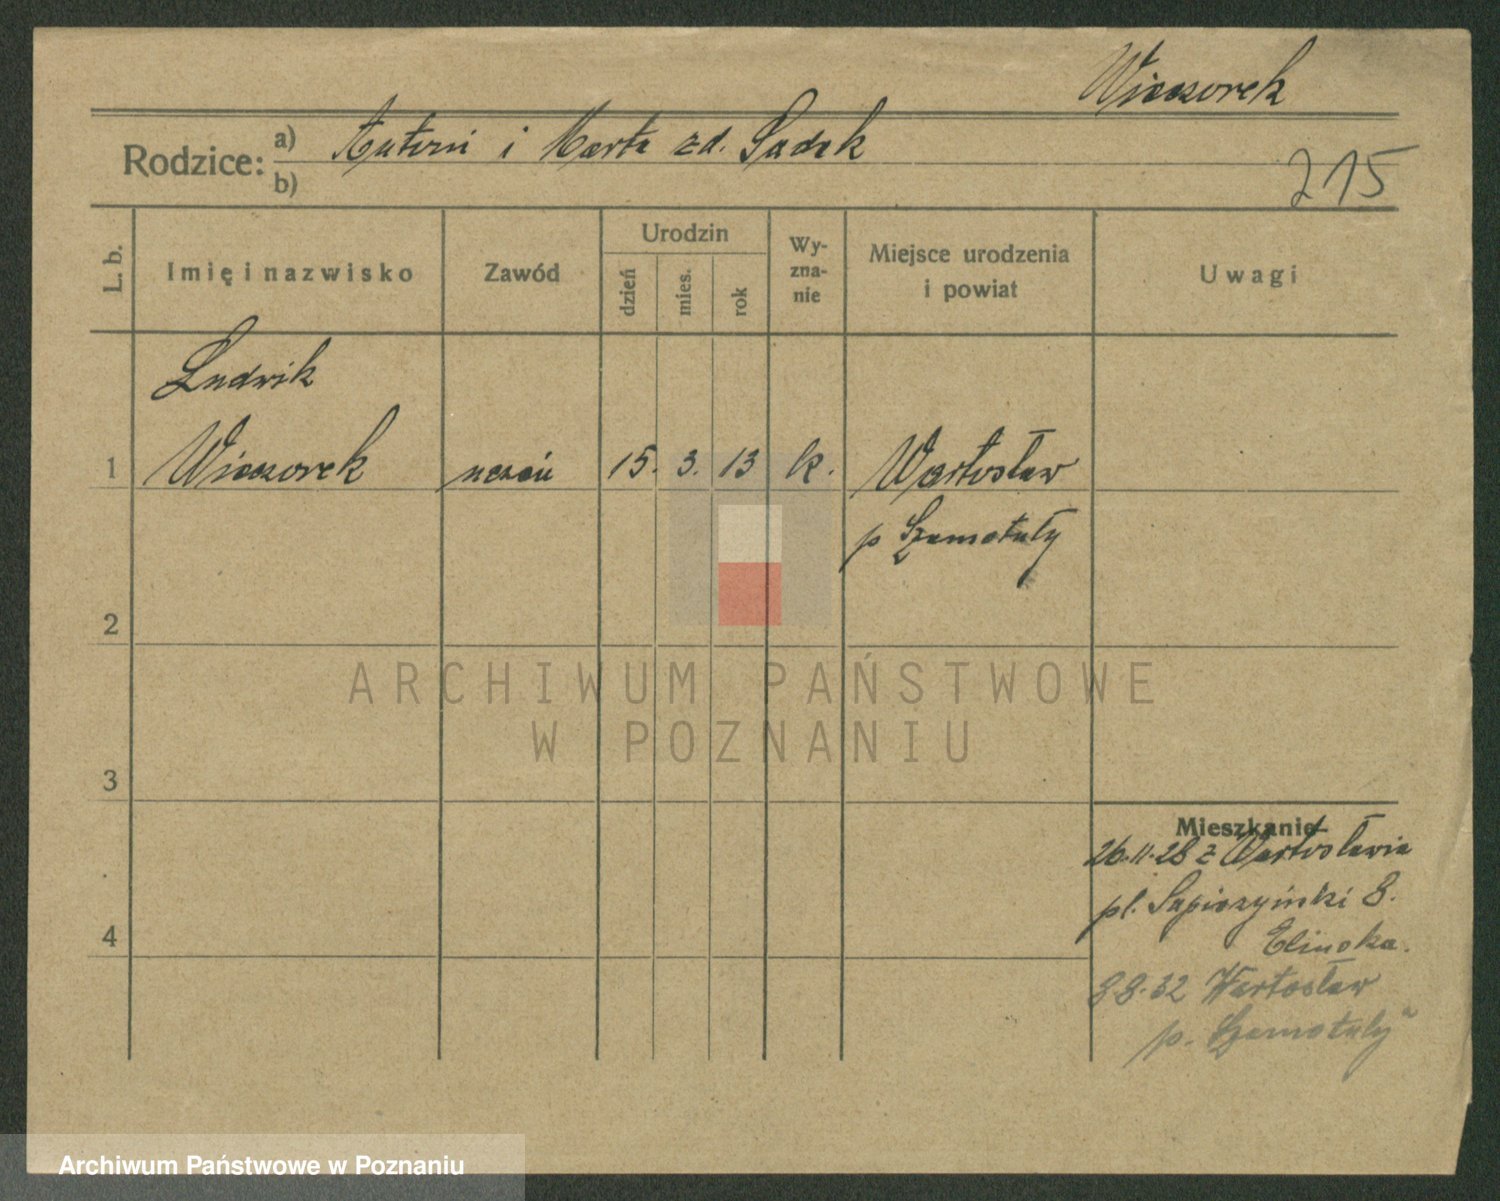 Wieczorek
Rodzice: a) Antoni i Marta zd. Sadek
b)
215
L. b.
Imię i nazwisko
Zawód
Urodzin
dzień
mies.
rok
Wy-
zna-
nie
Miejsce urodzenia
i powiat
Uwagi
Ludwik
1 Wieczorek uczeń 15. 3. 13 k. Wartosław
p Szamotuły
2
ARCHIWUM PAŃSTWOWE
W POZNANIU
3
Mieszkanie
26.11.28 z Wartosławia
pl. Sapieżyński 8.
4
8.8.32 Wartosław
p. Szamotuły
Archiwum Państwowe w Poznaniu